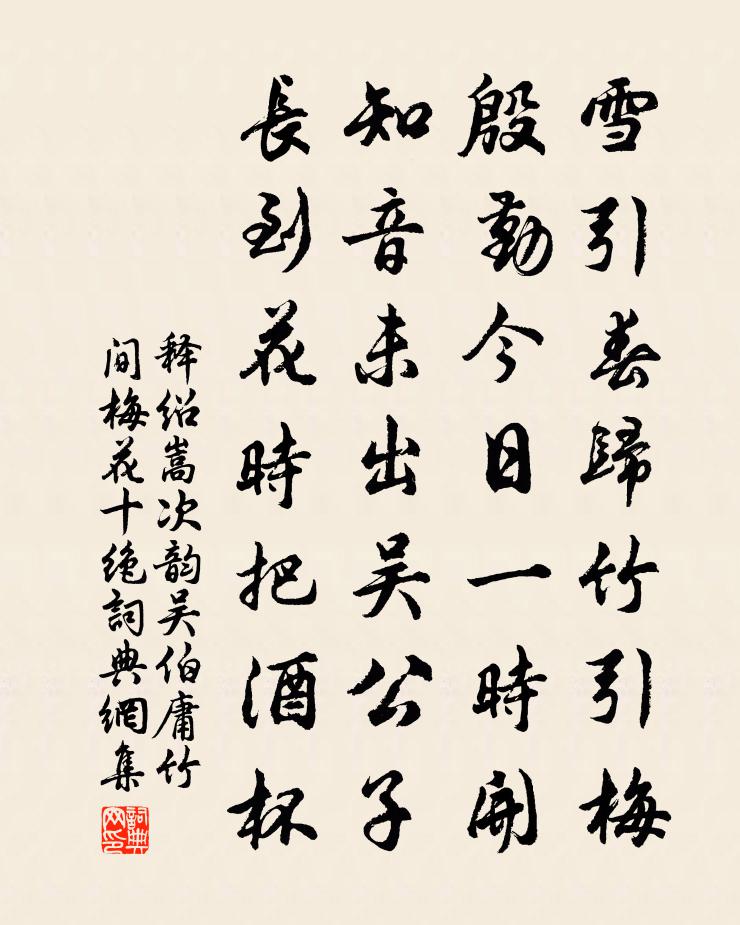 雪引春歸竹引梅
殷勤今日一時開
知音未出吴公子
長到花時把酒杯
释绍嵩次韵吴伯庸竹
间梅花十绝詞典網集
詞典
网印